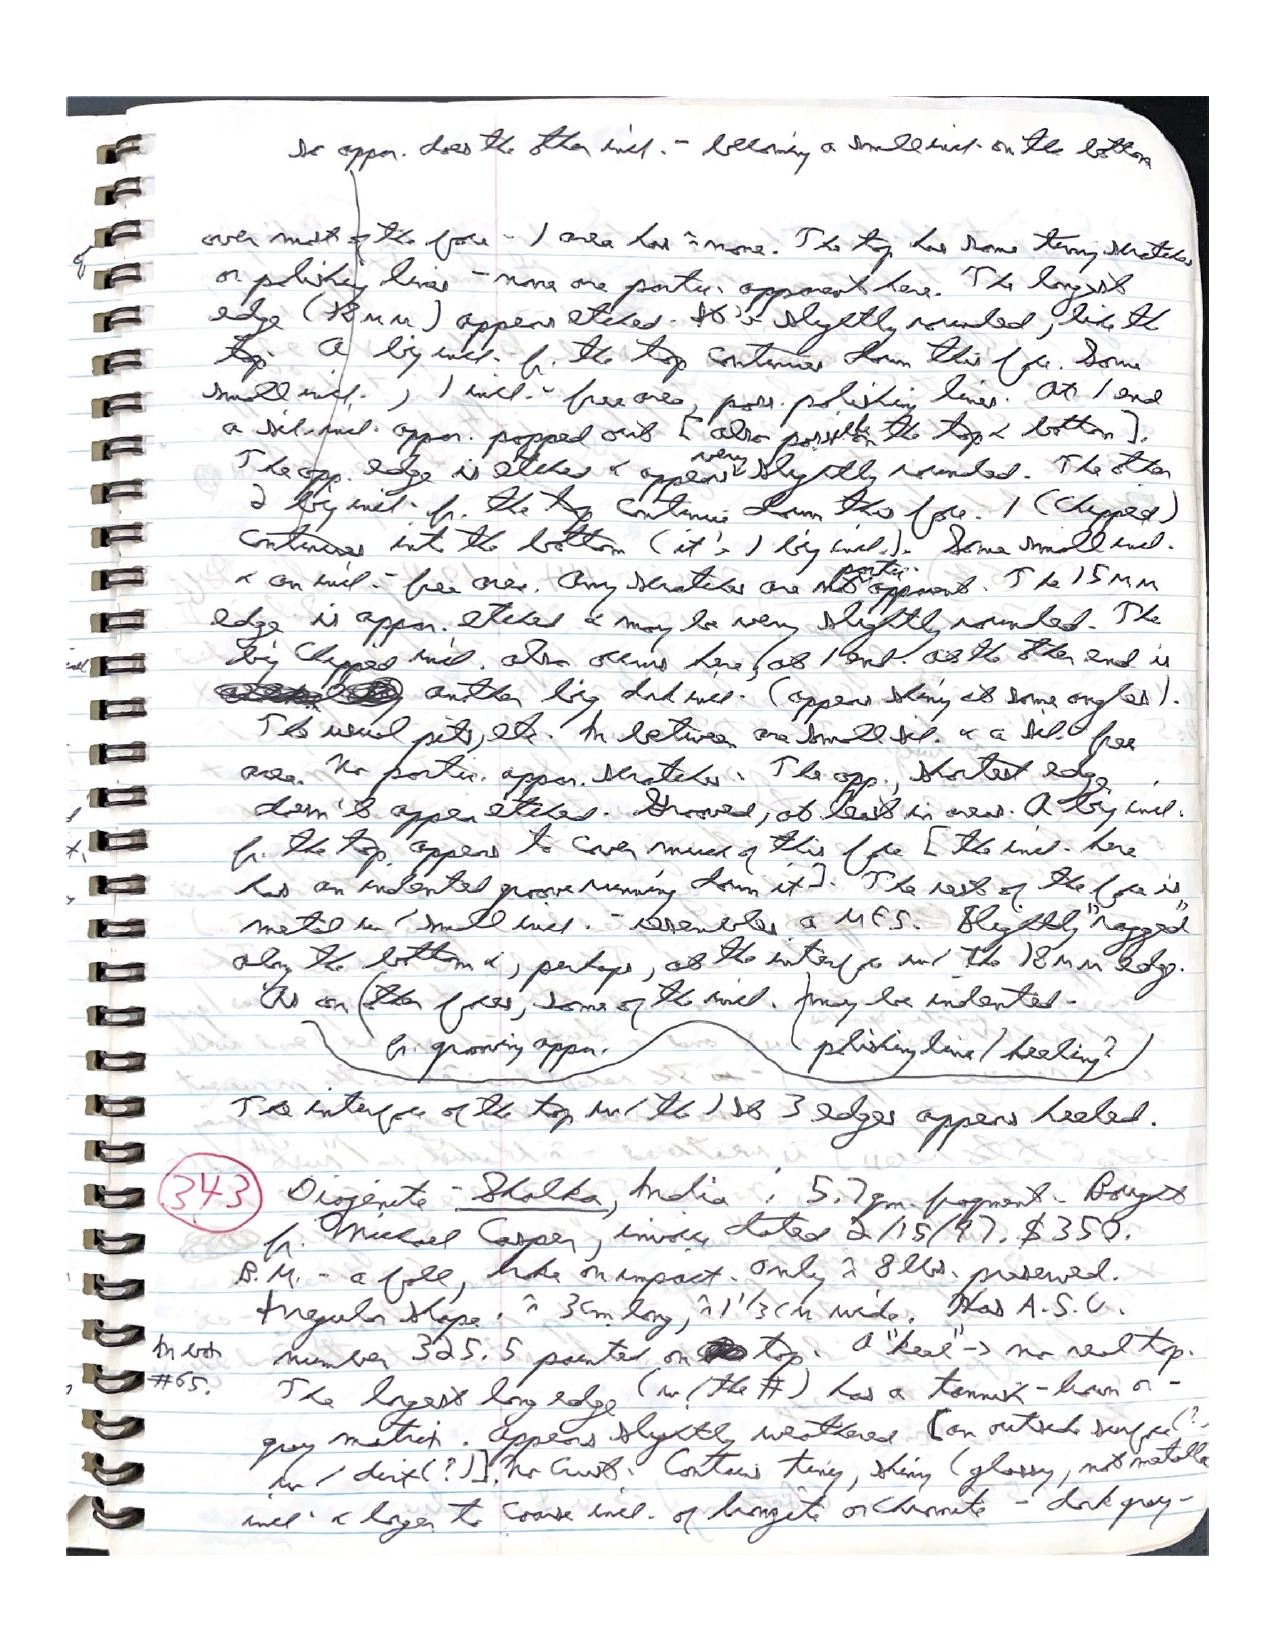 so appar. does the other incl. - becoming a small incl. on the bottom
over most of the face - 1 area has ≈ none. The top has some tiny scratches
or polishing lines - none are partic. apparent here. The longest
edge (18 mm) appears etched. It's slightly rounded, like the
top. A big incl. fr. the top continues down this face. Some
small incl., 1 incl.-free area, poss. polishing lines. At 1 end
a sil. incl. appar. popped out [also possible on the top & bottom].
The opp. edge is etched & appears very slightly rounded. The other
2 big incl. fr. the top continue down this face. 1 (chipped)
continues into the bottom (it's 1 big incl.). Some small incl.
& an incl.-free area. Any scratches are not partic. apparent. The 15 mm
edge is appar. etched & may be very slightly rounded. The
big chipped incl. also occurs here, at 1 end. At the other end is
another big dark incl. (appears shiny at some angles).
The usual pits, etc. In between are small sil. & a sil. free
area. No partic. appar. scratches. The opp., shortest edge
doesn't appear etched. Grooved, at least in areas. A big incl.
fr. the top appears to cover much of this face [the incl. here
has an indented groove running down it]. The rest of the face is
metal w/ small incl. - resembles a MES. Slightly "ragged"
along the bottom &, perhaps, at the interface w/ the 18 mm edge.
As on other faces, some of the incl. may be indented -
fr. grooving appar. polishing line/beveling?
The interface of the top w/ the 1st 3 edges appears beveled.
343 Diogenite - Shalka, India: 5.7 gm. fragment. Bought
fr. Michael Casper, invoice dated 2/15/97. $350.
B.M. - a fall, broke on impact. Only ≈ 8 lbs. preserved.
Irregular shape. ≈ 3 cm long, ≈ 1 1/3 cm wide. Has A.S.U.
In box number 325.5 painted on top. A "keel" -> no real top.
#65. The largest long edge (w/ the #) has a tannish-brown or -
gray matrix. Appears slightly weathered [an outside surface(?)
w/ dirt(?)]. No crust. Contains tiny, shiny (glassy, not metallic
incl. & larger to coarse incl. of bronzite or chromite - dark gray-